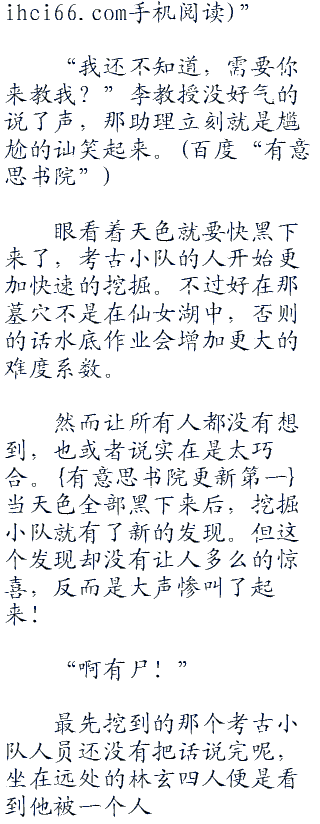 ihci66.com手机阅读)”
“我还不知道，需要你
来教我？”李教授没好气的
说了声，那助理立刻就是尴
尬的讪笑起来。(百度“有意
思书院”)
眼看着天色就要快黑下
来了，考古小队的人开始更
加快速的挖掘。不过好在那
墓穴不是在仙女湖中，否则
的话水底作业会增加更大的
难度系数。
然而让所有人都没有想
到，也或者说实在是太巧
合。{有意思书院更新第一}
当天色全部黑下来后，挖掘
小队就有了新的发现。但这
个发现却没有让人多么的惊
喜，反而是大声惨叫了起
来！
“啊有尸！”
最先挖到的那个考古小
队人员还没有把话说完呢，
坐在远处的林玄四人便是看
到他被一个人